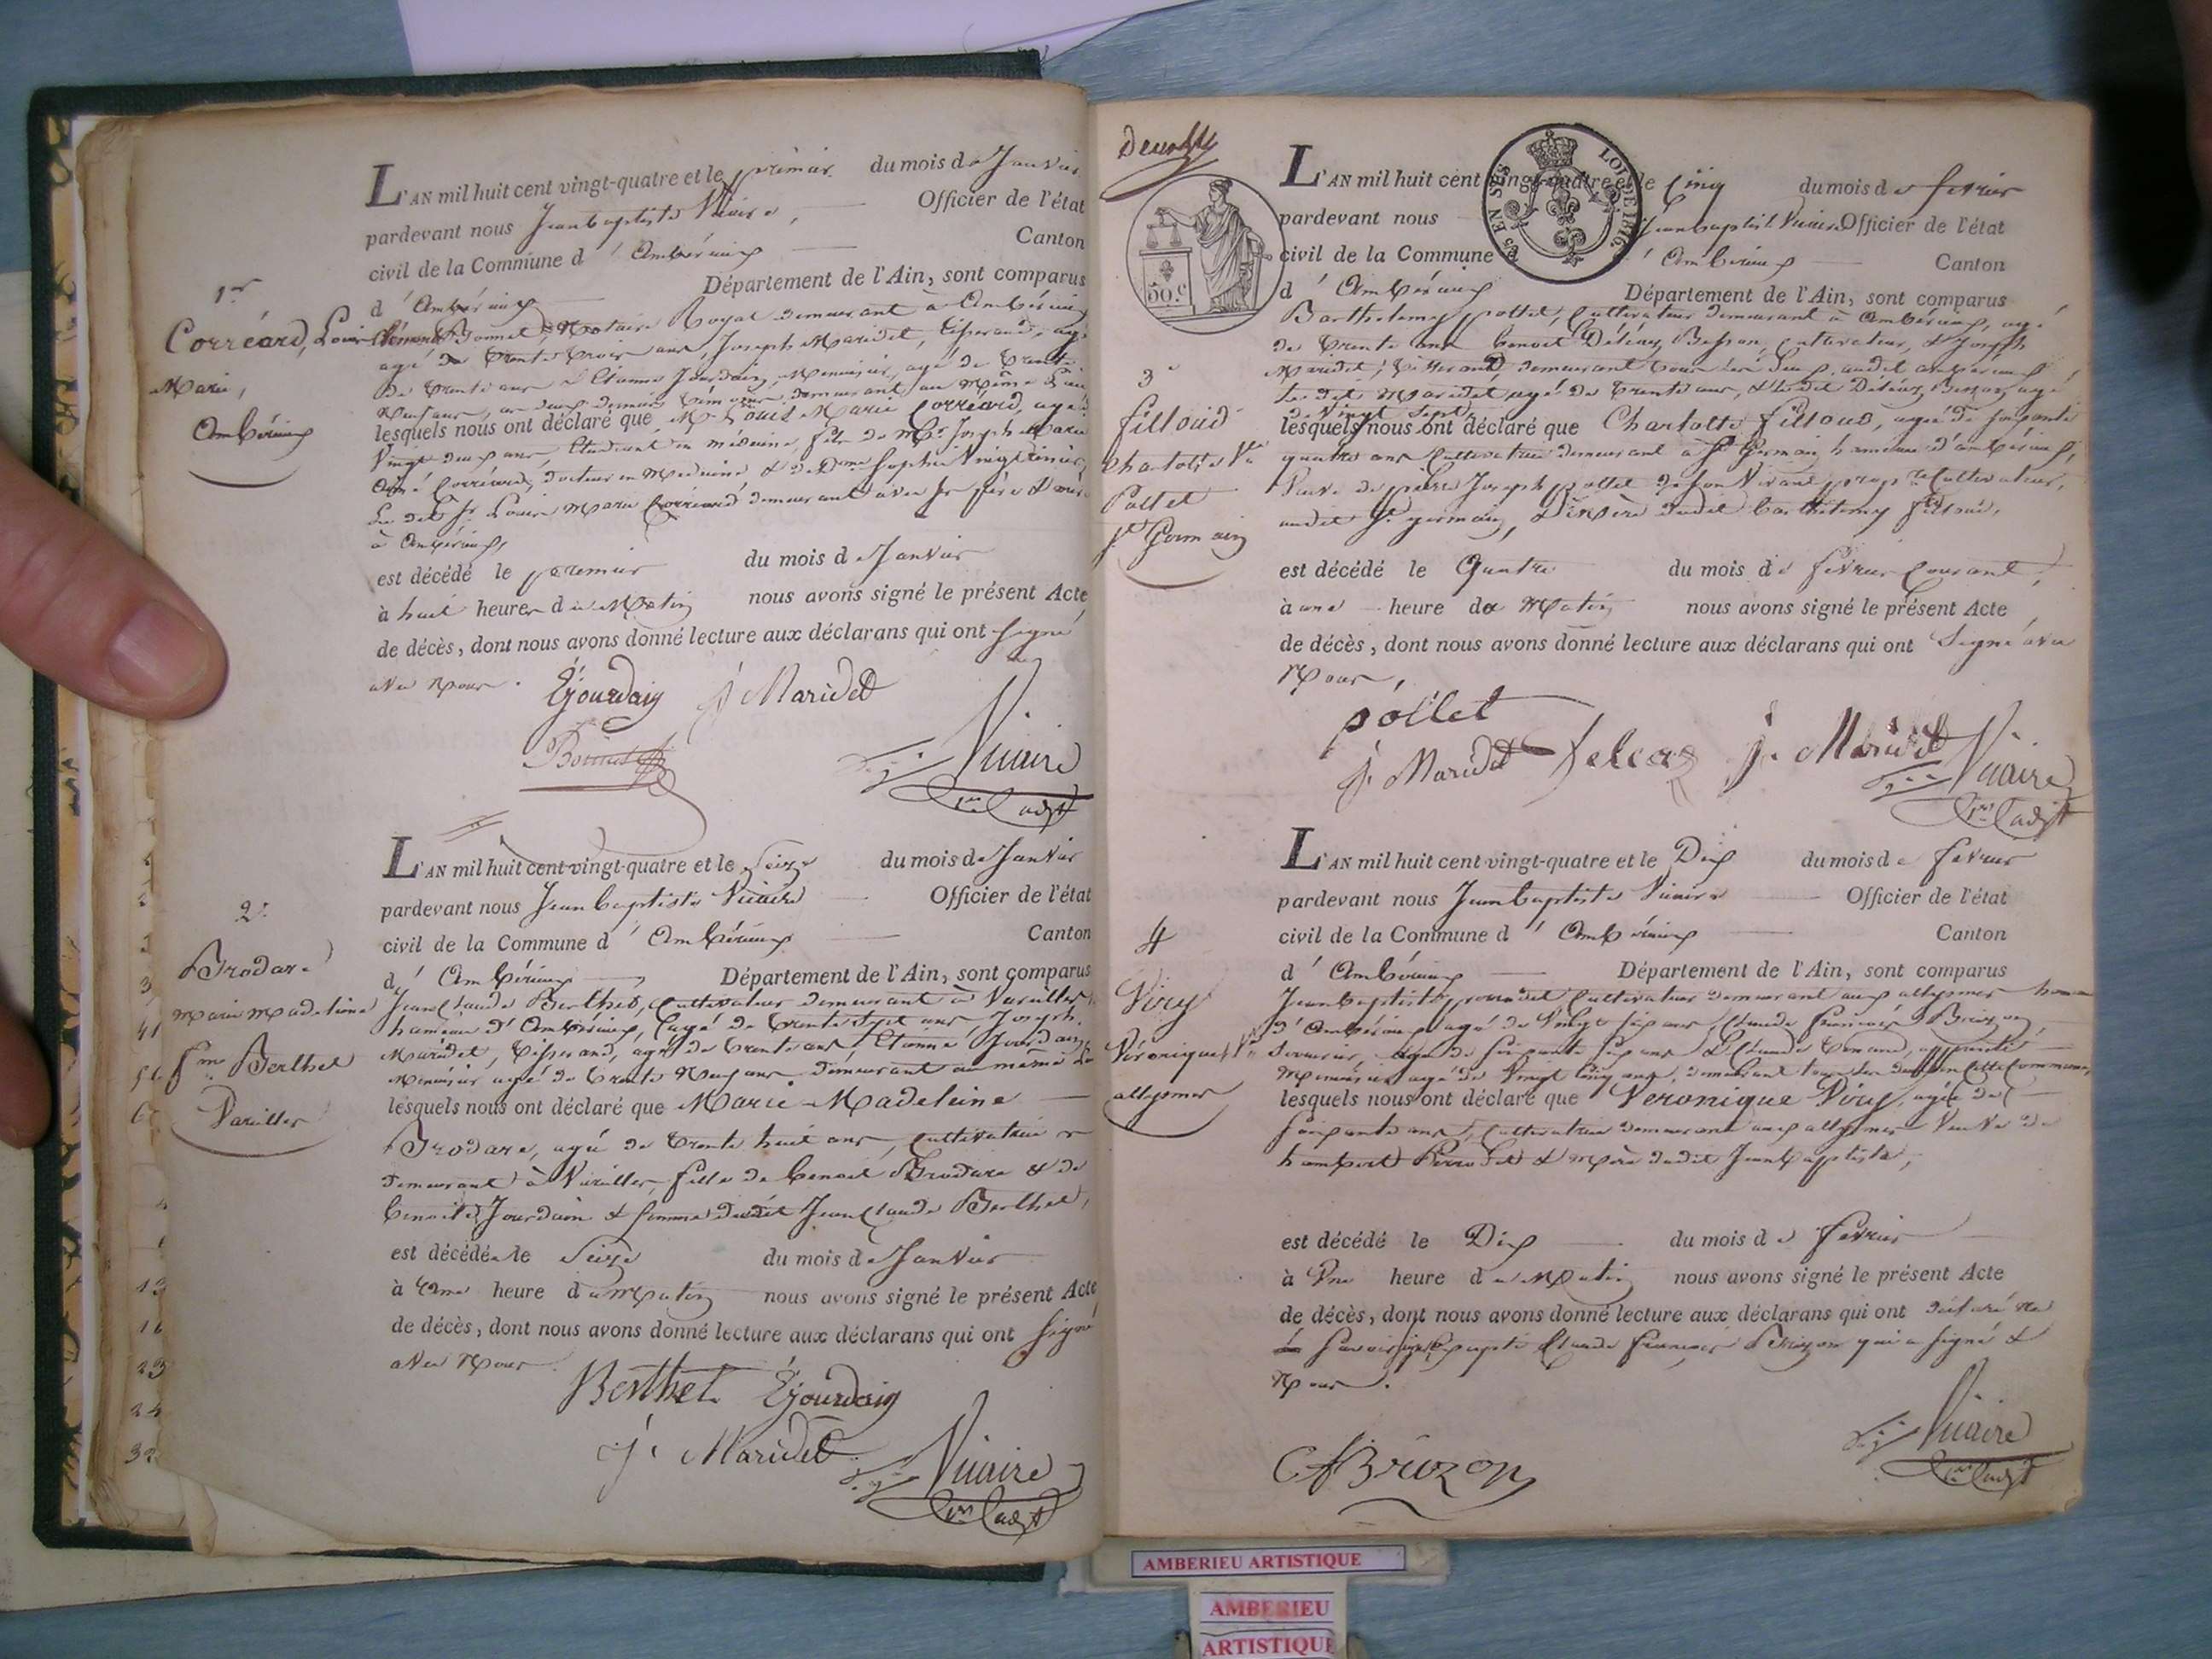 1er
Corréard, Louis
Marie,
Ambérieux
L'AN mil huit cent vingt-quatre et le premier du mois de Janvier
pardevant nous Jean baptiste Vicaire, Officier de l'état
civil de la Commune d'Ambérieux Canton
d'Ambérieux Département de l'Ain, sont comparus
Bonnet, Notaire Royal demeurant à Ambérieux
agé de trente trois ans, Joseph Maridet, tisserand, agé
de trente ans & Etienne Jourdain, Menuisier, agé de trente
neuf ans, demeurant au même lieu
lesquels nous ont déclaré que Mr Louis Marie Corréard, agé de
Vingt deux ans, Etudiant en médecine, fils de Mr Joseph Marie
Aimé Corréard, docteur en Medecine & de Dame Sophie Vingtrinier,
Le dit Sr Louis Marie Corréard demeurant avec ses père & mère
à Ambérieux,
est décédé le premier du mois de Janvier
à huit heures du Matin nous avons signé le présent Acte
de décès, dont nous avons donné lecture aux déclarans qui ont signé
avec Nous.
Ejourdain J Maridet
Bonnet
Vicaire
2e
Brodare
Marie Madeleine
fme Berthet
Vareilles
L'AN mil huit cent vingt-quatre et le Seize du mois de Janvier
pardevant nous Jean baptiste Vicaire Officier de l'état
civil de la Commune d'Ambérieux Canton
d'Ambérieux, Département de l'Ain, sont comparus
Jean Claude Berthet, Cultivateur demeurant à Vareilles
hameau d'Ambérieux, agé de trente sept ans Joseph
Maridet, tisserand, agé de trente ans, Etienne Jourdain,
Menuisier agé de trente Neuf ans demeurant au même Lieu
lesquels nous ont déclaré que Marie Madeleine
Brodare, agée de trente huit ans, Cultivatrice
demeurant à Vareilles, fille de Benoit Brodare & de
Benoite Jourdain & femme dudit Jean Claude Berthet,
est décédée le Seize du mois de Janvier
à 4eme heure du matin nous avons signé le présent Acte
de décès, dont nous avons donné lecture aux déclarans qui ont signé
avec Nous
Berthet Ejourdain
J. Maridet
Vicaire
50.c
EN SUS
LOI DE 1816.
3e
filloud
Charlotte Ve
Pollet
St Germain
L'AN mil huit cent vingt-quatre et le Cinq du mois de fevrier
pardevant nous Jean baptiste Vicaire Officier de l'état
civil de la Commune d'Ambérieux Canton
d'Ambérieux Département de l'Ain, sont comparus
Barthelemy pollet, Cultivateur demeurant à Ambérieux, agé
de trente ans Benoit Cultivateur, & Joseph
Maridet, tisserand, demeurant tous les deux audit Ambérieux,
Le dit Maridet agé de trente ans, & le dit agé
de Vingt Sept,
lesquels nous ont déclaré que Charlotte filloud, agée de soixante
quatre ans Cultivatrice demeurant à St Germain, hameau d'ambérieux,
Veuve de pierre Joseph pollet de son Vivant propre Cultivateur,
audit St germain, dudit Barthelemy
est décédé le Quatre du mois de fevrier Courant,
à une heure du Matin nous avons signé le présent Acte
de décès, dont nous avons donné lecture aux déclarans qui ont Signé avec
Nous,
pollet
J. Maridet J. Maridet Vicaire
4
Viry
Véronique Ve
allymes
L'AN mil huit cent vingt-quatre et le Dix du mois de fevrier
pardevant nous Jean baptiste Vicaire Officier de l'état
civil de la Commune d'Ambérieux Canton
d'Ambérieux Département de l'Ain, sont comparus
Jean baptiste perrodet Cultivateur demeurant aux allymes
d'Ambérieux agé de Vingt six ans, Claude François Brizon
agé de soixante six ans & Claude
Menuisier agé de Vingt Cinq ans, demeurant tous les deux en Cette Commune,
lesquels nous ont déclaré que Veronique Viry, agée de
soixante ans, Cultivatrice demeurant aux allymes Veuve de
hambert Perrodet & Mère dudit Jean baptiste,
est décédé le Dix du mois de fevrier
à Une heure du Matin nous avons signé le présent Acte
de décès, dont nous avons donné lecture aux déclarans qui ont déclaré ne
Savoir signer excepté Claude François Brizon qui a signé &
Nous.
CfBrizon
Vicaire
AMBERIEU ARTISTIQUE
AMBERIEU
ARTISTIQUE